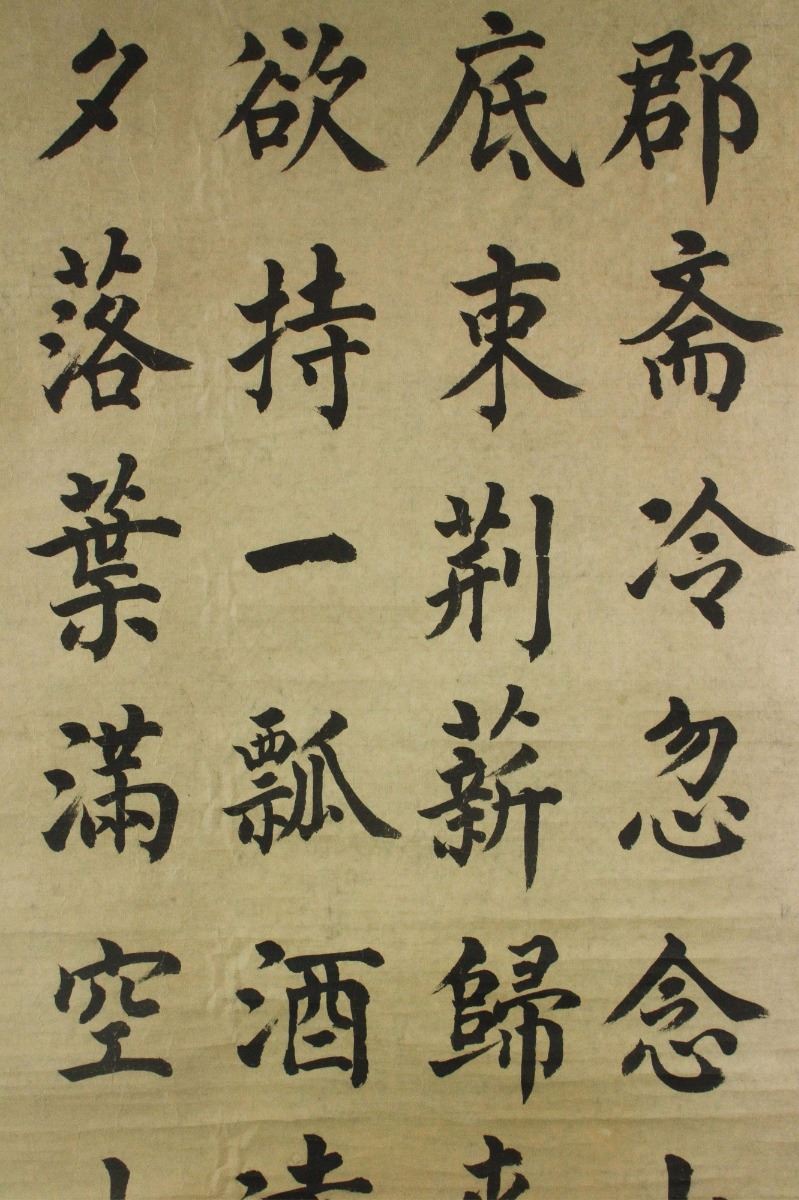 郡斋冷忽念
底束荊薪歸
欲持一瓢酒
夕落葉滿空